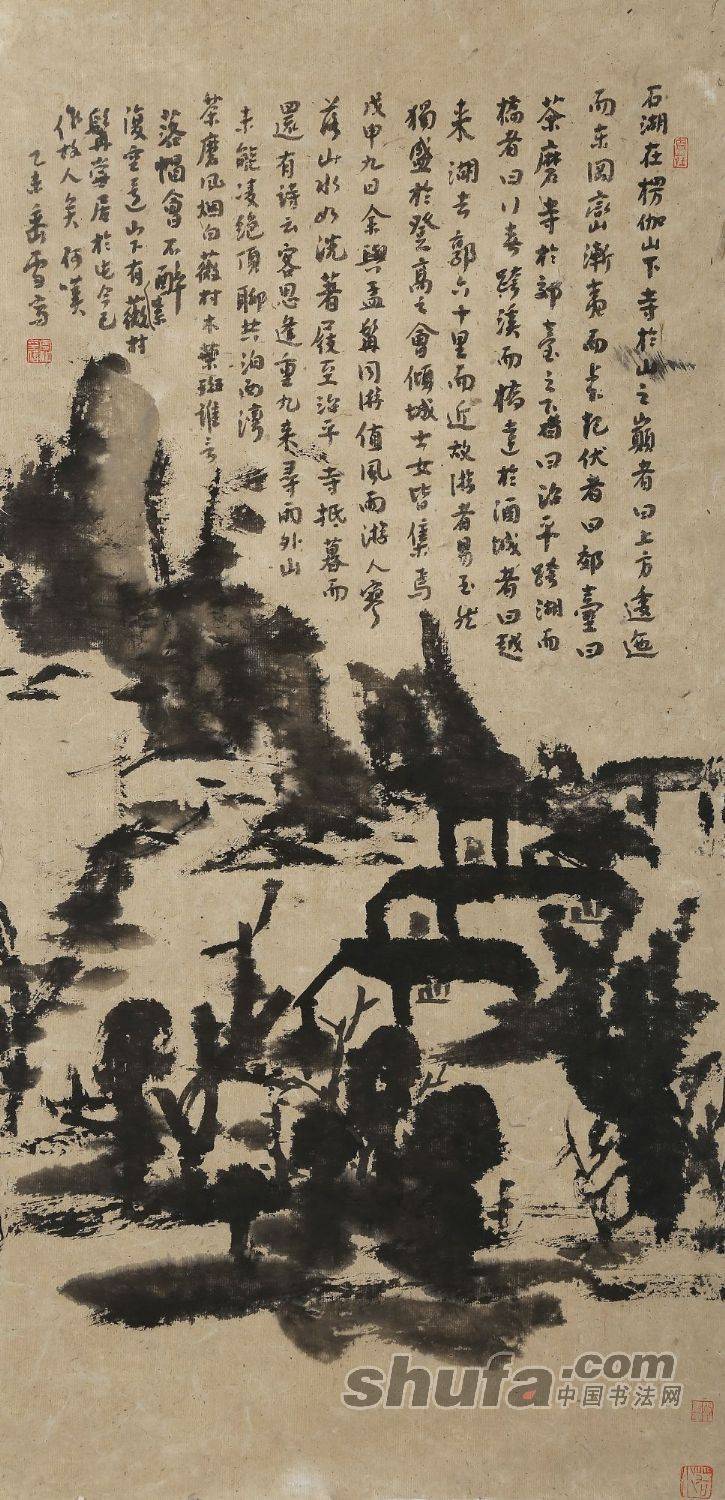 石湖在楞伽山下寺於山之巔者曰上方逶迤
而东岡巒漸夷而起伏者曰郊臺曰
茶磨寺於郊臺之下者曰治平跨湖而
橋者曰行春跨溪而橋達於酒城者曰越
来湖去郭六十里而近故游者易至然
獨盛於登高之會傾城士女皆集焉
戊申九日余與孟髯同游值風雨游人寥
落山水如洗著屐至治平寺抵暮而
還有詩云客思逢重九来尋雨外山
未能凌绝頂聊共泊西灣
茶磨風烟白薇村木葉斑誰言
落帽會不醉
山下有薇村
髯嘗居於此今已
作故人矣可嘆
乙未雪寫
shufa.com
中国书法网